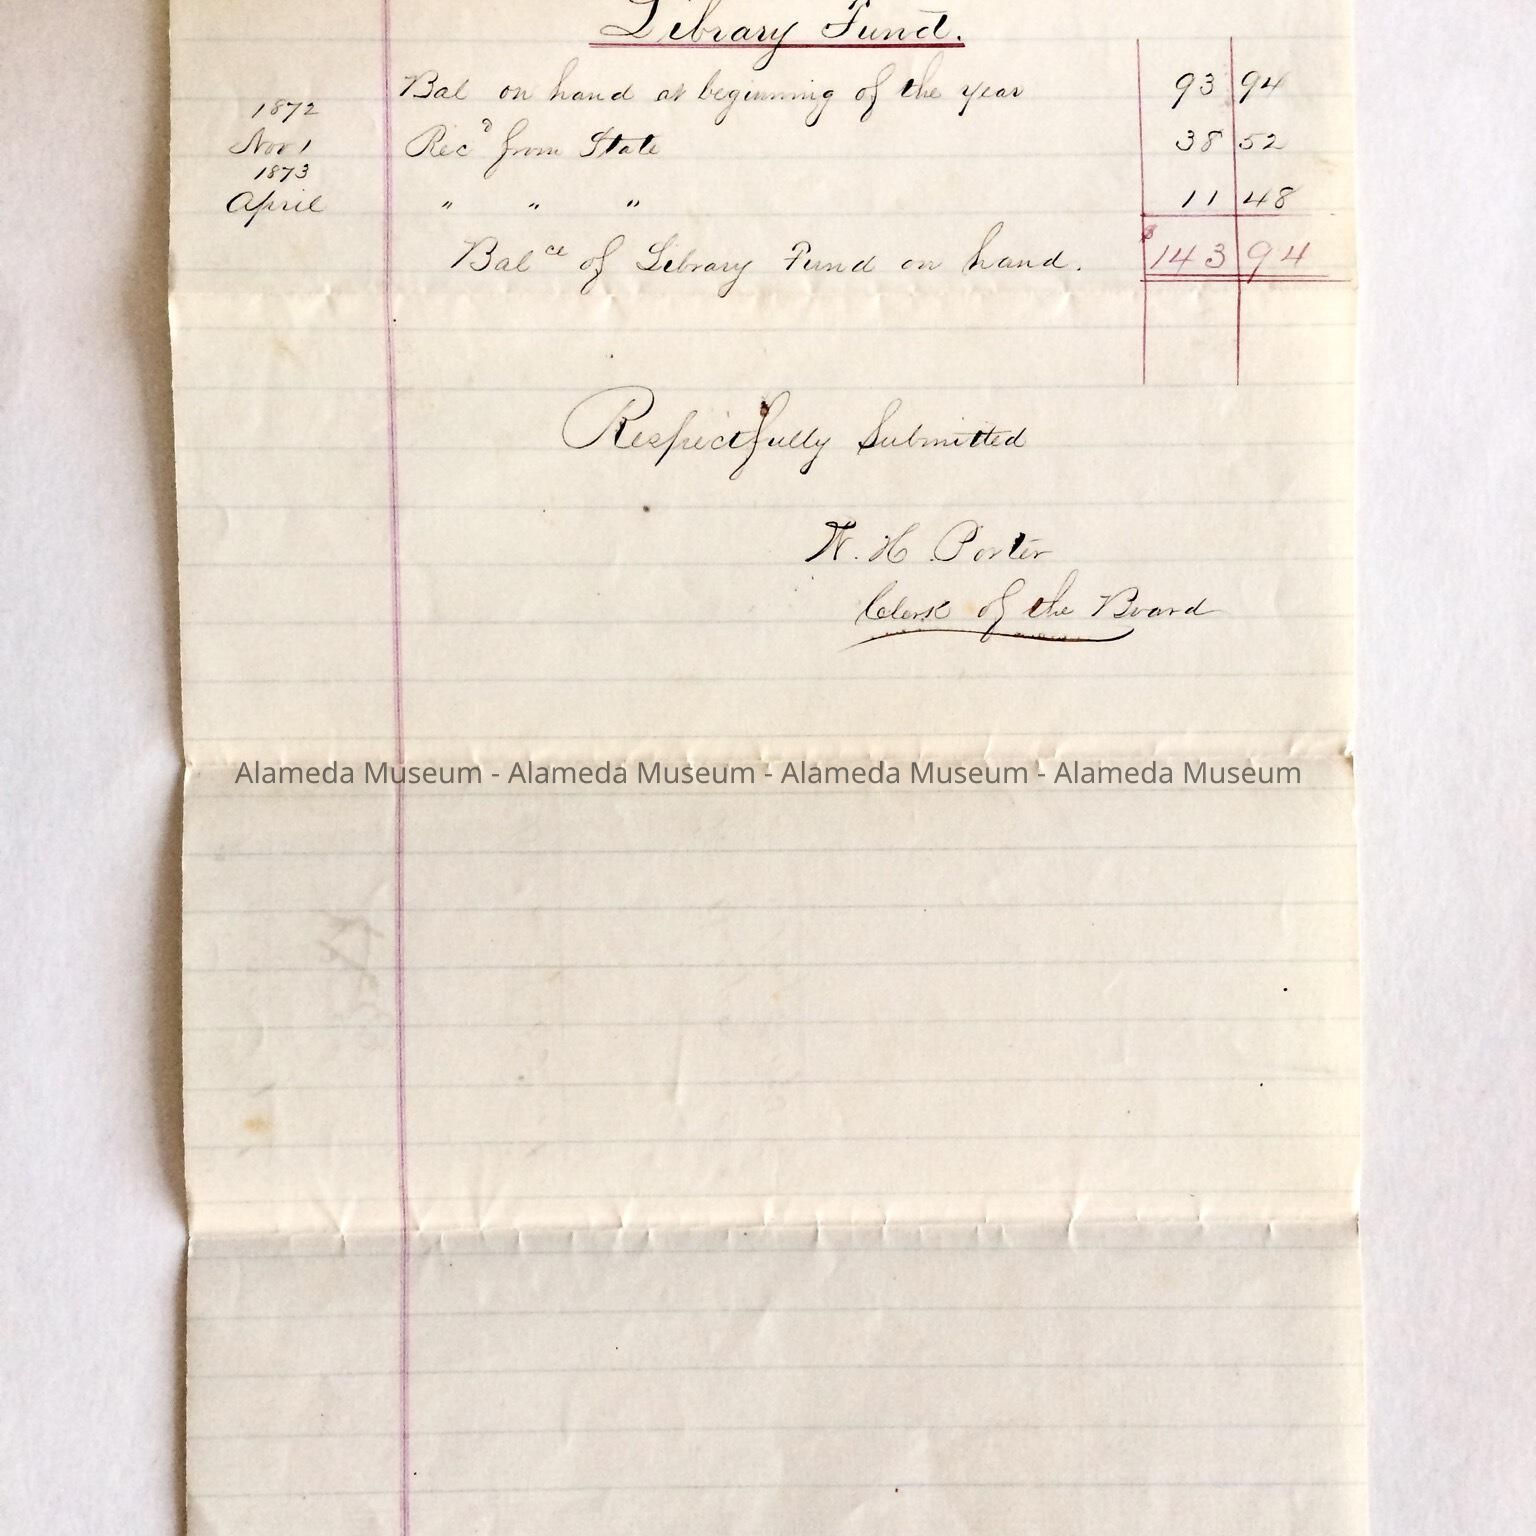 Library Fund.
Bal on hand at beginning of the year 93 94
1872
Nov 1 Rec^d from State 38 52
1873
April " " " 11 48
Bal^ce of Library Fund on hand. $143 94
Respectfully Submitted
W. H Porter
Clerk of the Board
Alameda Museum - Alameda Museum - Alameda Museum - Alameda Museum